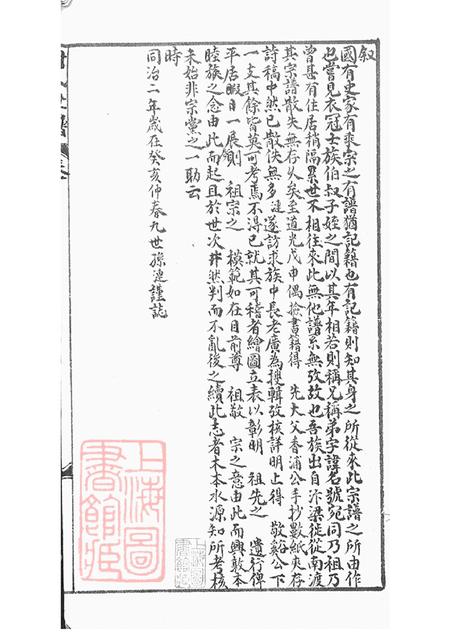 叙
國有史家有乘宗之有譜猶記籍也有記籍則知其身之所從來此宗譜之所由作
也嘗見衣冠士族伯叔子姪之間以其年相若則稱兄稱弟字諱名號宛同乃祖乃
曾甚有住居稍隔累世不相往來此無他譜系無攷故也吾族出自汴梁徙從南渡
其宗譜散失無存久矣至道光戊申偶撿書籍得 先大父香浦公手抄數紙夾存
詩稿中然已散佚無多漣遂訪求族中長老廣為搜輯攷核詳明止得 敬谿公下
一支其餘皆莫可考焉不得已就其可稽者繪圖立表以彰明 祖先之 遺行俾
平居暇日一展則 祖宗之 模範如在目前尊 祖敬 宗之意由此而興敦本
睦族之念由此而起且於世次井然判而不亂後之續此志者木本水源知所考核
未始非宗黨之一助云
時
同治二年歲在癸亥仲春九世孫漣謹誌
上海圖書館藏